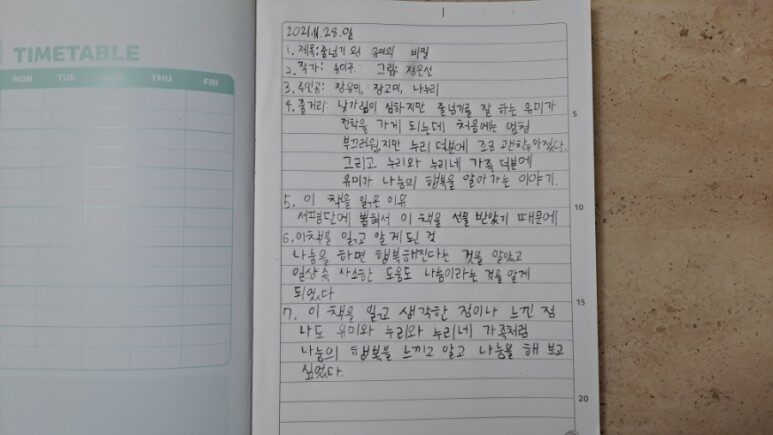 TIMETABLE
MON TUE WED THU FRI
2021.11.28.일
1. 제목: 줄넘기 왕 유미의 비밀
2. 작가: 그림: 정은선
3. 주인공: 장유미, 장고미, 나누리
4. 줄거리: 낯가림이 심하지만 줄넘기를 잘 하는 유미가
전학을 가게 되는데 처음에는 엄청
부끄러웠지만 누리 덕분에 조금 괜찮아졌다.
그리고 누리와 누리네 가족 덕분에
유미가 나눔의 행복을 알아가는 이야기.
5. 이 책을 읽은 이유
서평단에 뽑혀서 이 책을 선물 받았기 때문에
6. 이책을 읽고 알게된 것
나눔을 하면 행복해진다는 것을 알았고
일상 속 사소한 도움도 나눔이라는 것을 알게
되었다
7. 이 책을 읽고 생각한 점이나 느낀 점
나도 유미와 누리와 누리네 가족처럼
나눔의 행복을 느끼고 알고 나눔을 해 보고
싶었다.
5
10
15
20